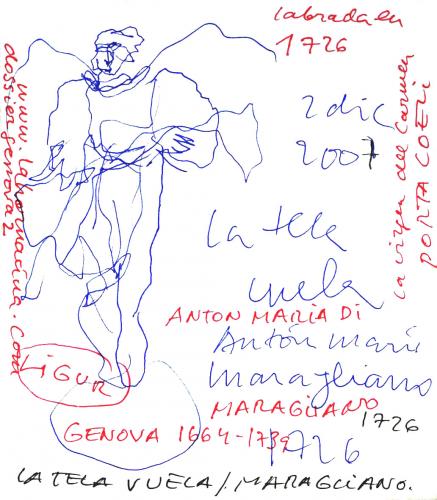 labrada en
1726
2 dic
2007
la tela
vuela
la virgen del Carmen
PORTA COELI
www.lahornacina.com
dossiergenova2
ANTON MARIA DI
Antón Maria
maragliano
MARAGLIANO
1726
1726
LIGUR
GENOVA 1664-1739
LA TELA VUELA/MARAGLIANO.